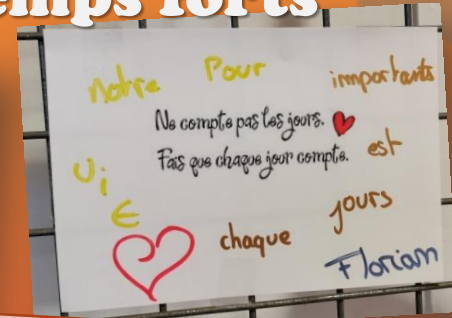 emps forts
Notre Pour importants
Ne compte pas les jours.
Fais que chaque jour compte.
est
Vie
jours
chaque
Florian